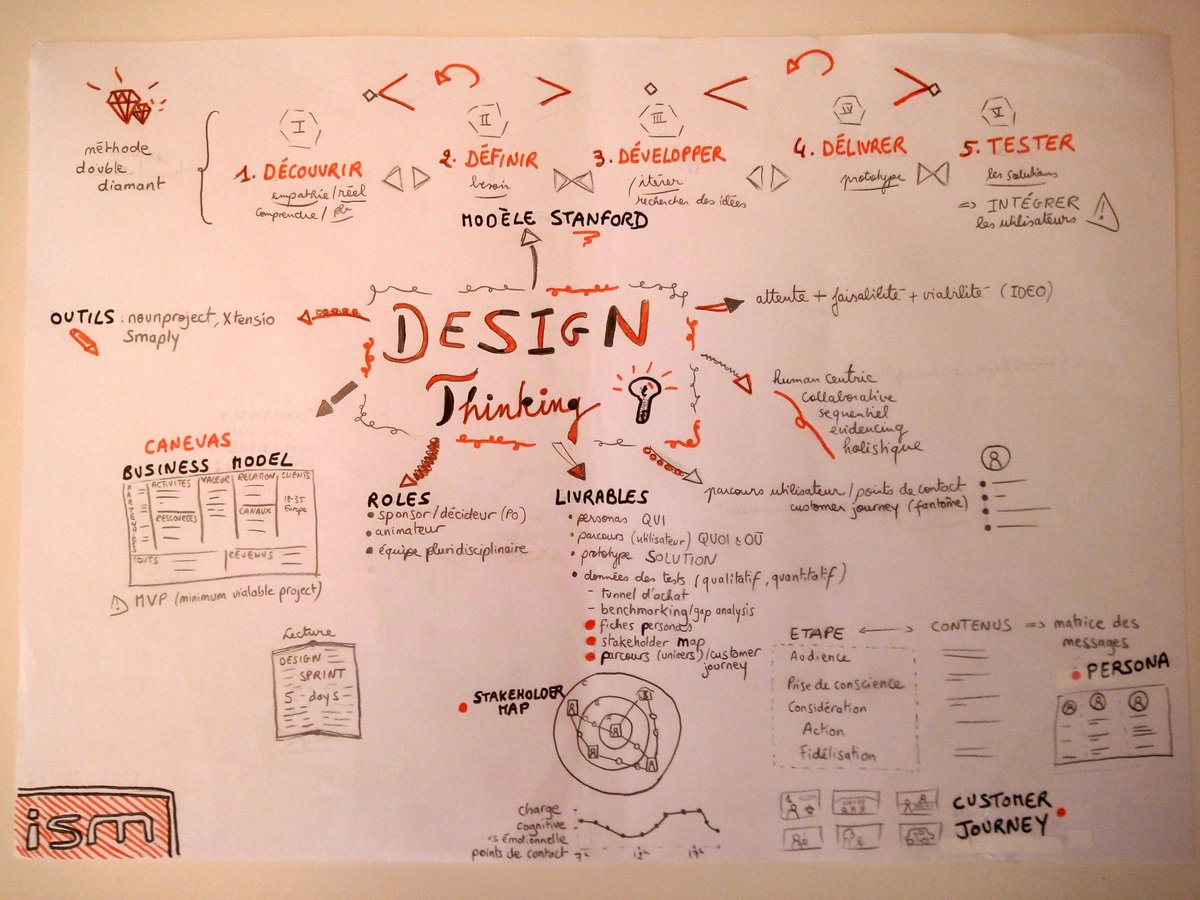 méthode
double
diamant
I
II
III
IV
V
1. DÉCOUVRIR
empathie/réel
comprendre/pb
2. DÉFINIR
besoin
3. DÉVELOPPER
/itérer
rechercher des idées
4. DÉLIVRER
prototype
5. TESTER
les solutions
=> INTÉGRER
les utilisateurs
MODÈLE STANFORD
DESIGN
Thinking
attente + faisabilité + viabilité (IDEO)
OUTILS : nounproject, Xtensio
Smaply
human centric
collaborative
sequentiel
evidencing
holistique
CANEVAS
BUSINESS MODEL
PARTENAIRES
ACTIVITÉS
RESSOURCES
VALEUR
RELATION
CANAUX
CLIENTS
18-35
Europe
COUTS
REVENUS
MVP (minimum vialable project)
ROLES
• sponsor/décideur (PO)
• animateur
• équipe pluridisciplinaire
LIVRABLES
• personas QUI
• parcours (utilisateur) QUOI & OÙ
• prototype SOLUTION
• données des tests (qualitatif, quantitatif)
- tunnel d'achat
- benchmarking/gap analysis
• fiches personas
• stakeholder map
• parcours (univers)/customer
journey
parcours utilisateur/points de contact
customer journey (fantôme)
Lecture
DESIGN
SPRINT
5 -days-
STAKEHOLDER
MAP
ETAPE
Audience
Prise de conscience
Considération
Action
Fidélisation
CONTENUS => matrice des
messages
• PERSONA
charge
cognitive
vs émotionnelle
points de contact
7h 12h 17h
CUSTOMER
JOURNEY
ism